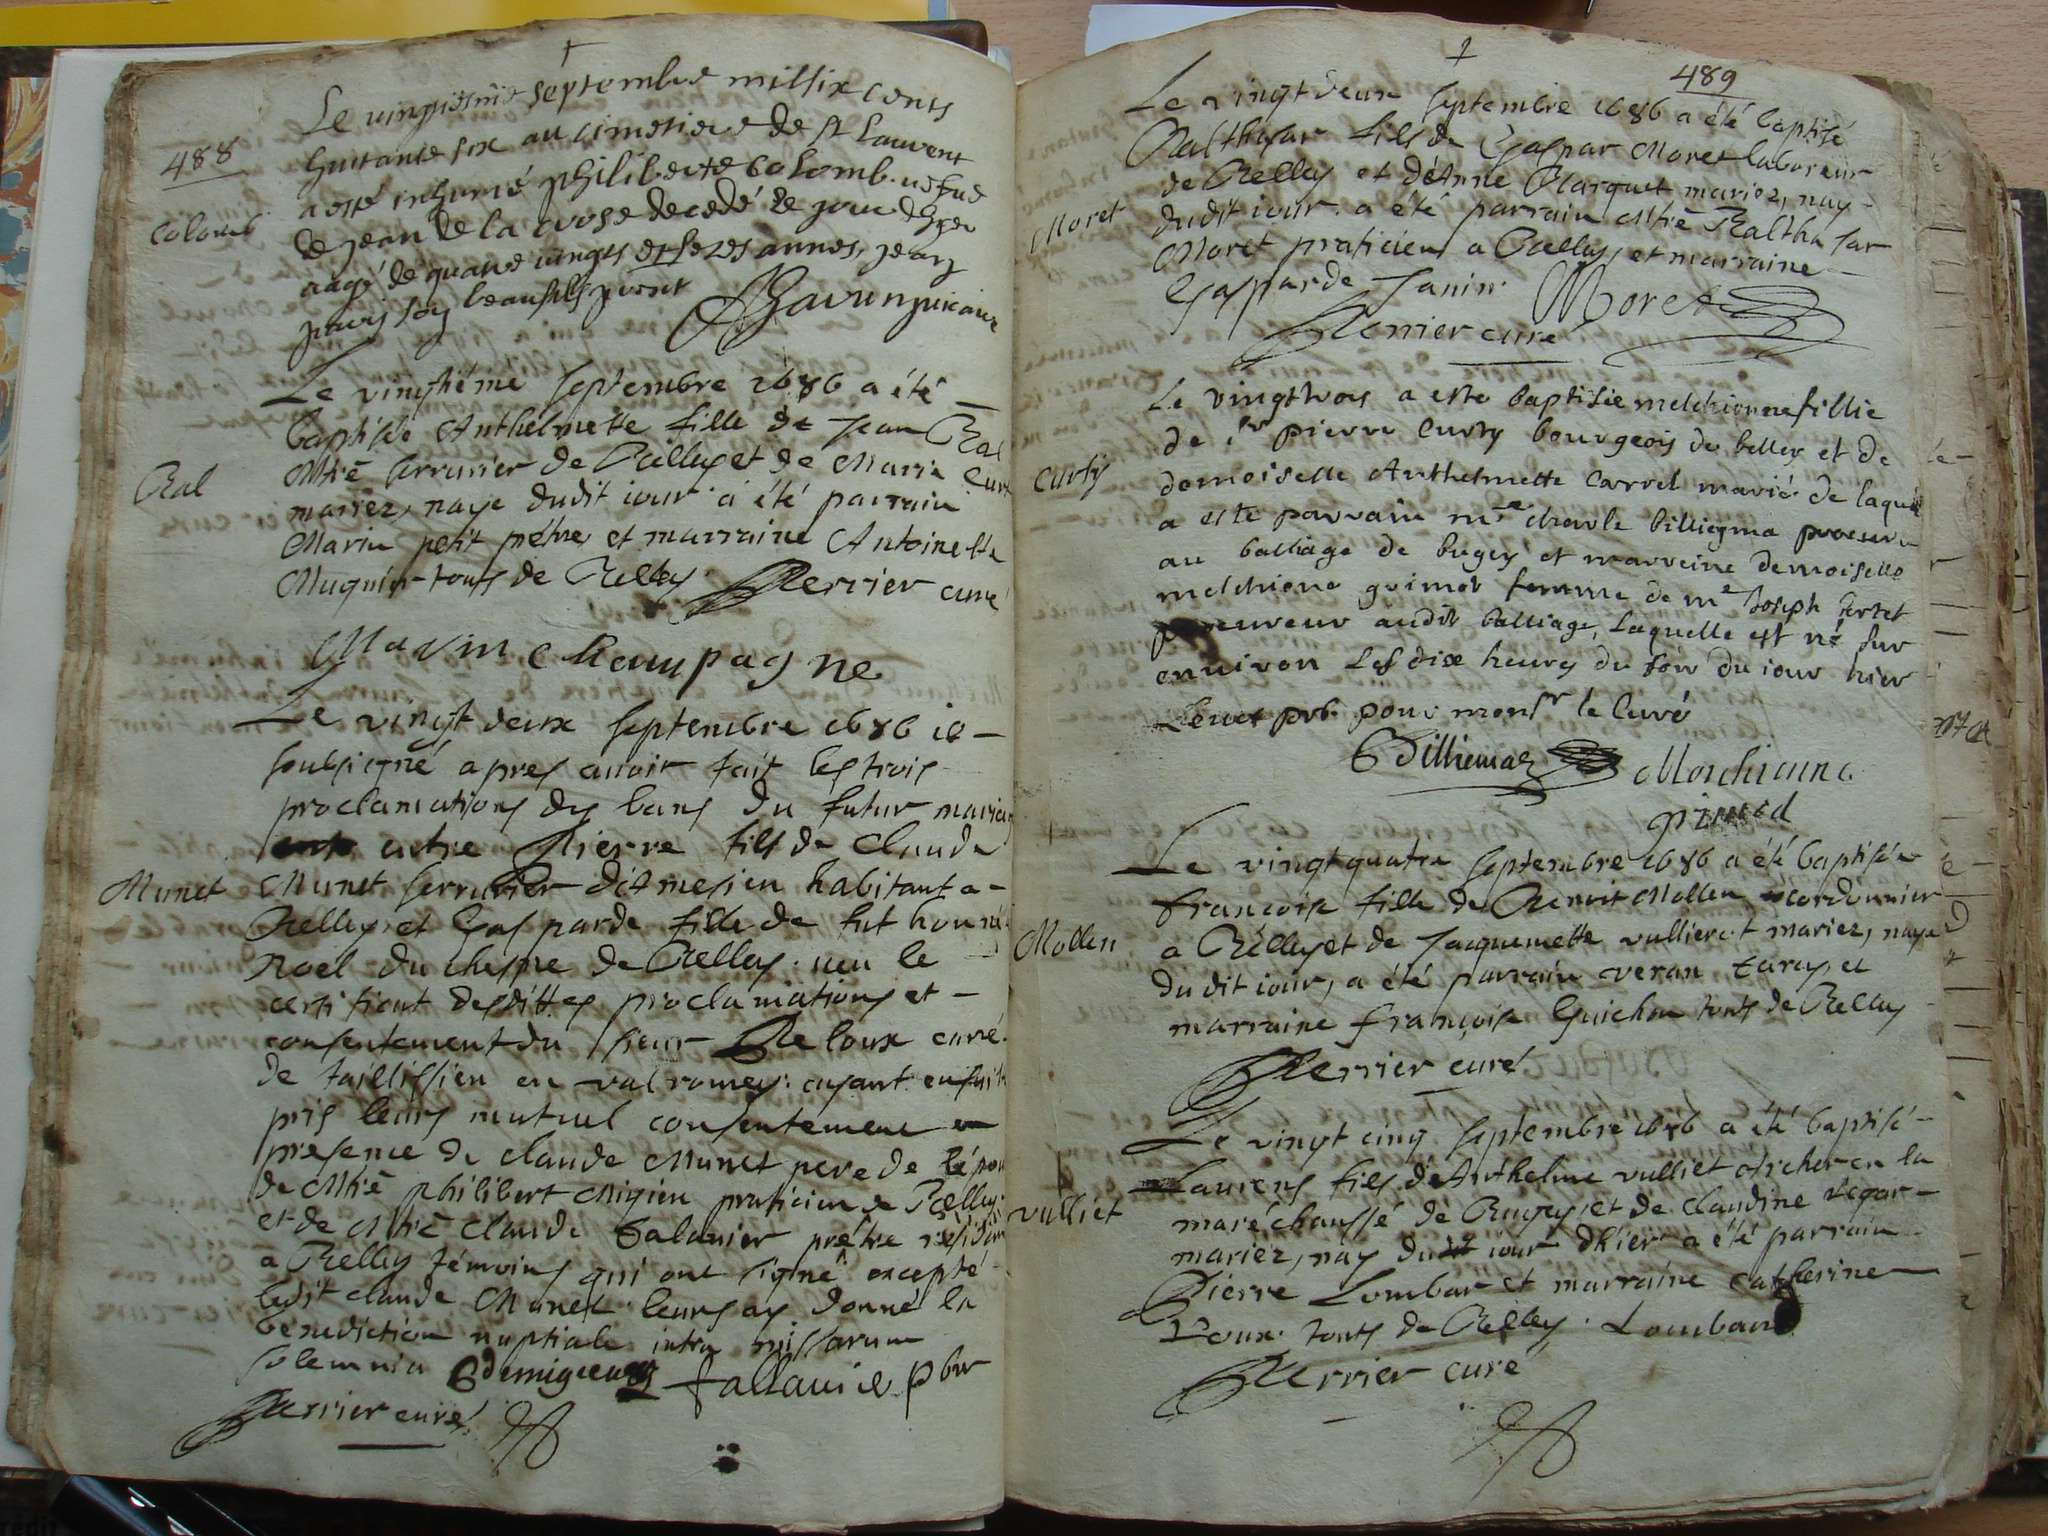 488
Le vingtiesme septembre mil six cents
huitante six au cimetiere de st Laurent
a esté inhumé philiberte Colomb vefue
Colomb
de jean de la crose decedé le jour dhyer
aagé de quatre vingts et sezes annes, jean
son beau fils
Le vingtiéme septembre 1686 a été
baptisée Anthelmette fille de Jean Bal
Mtre serrurier de Belley et de Marie
Bal
mariez, naye dudit iour a été parrain
Marin petit prétre et marraine Antoinette
Mugnier touts de Belley. Perrier curé
Marin Champagne
Le vingt deux septembre 1686 ie
soubsigné apres auoir fait les trois
proclamations des bans du futur mariage
entre Pierre fils de Claude
Munet
Munet serrurier d'Amesieu habitant a
Belley et Gasparde fille de fut honné
Noel du chesne de Belley. veu le
certificat desdittes proclamations et
consentement du sieur Reloux curé
de taillissieu en valromey. ayant ensuite
pris leurs mutuel consentement en
presence de claude Munet pere de l'épou
de Mtre philibert Migieu praticien de Belley
et de Mtre Claude prétre residant
a Belley témoins qui ont signé excepté
ledit claude Munet leurs ay donné la
benediction nuptiale intra missarum
solemnia Demigieux fallavier pbre
Perrier curé
489
Le vingt deux septembre 1686 a été baptisé
Balthesar fils de Gaspar Moret laboreur
de Belley et d'Anne Marquet mariez, nay
Moret
dudit iour. a été parrain Mtre Balthasar
Moret praticien a Belley, et marraine
Gasparde Janin. Moret
Perrier curé
Le vingt trois a esté baptisée melchionne fillie
de sr pierre Curty bourgeois de belley et de
Curty
demoiselle Anthelmette Carrel marié de laquelle
a esté parrain me charle billiema procureur
au balliage de bugey et marreine demoiselle
melchione grimod femme de me Joseph
procureur audit balliage, laquelle est né sur
enuiron les dix heures du soir du iour hier
pbr. pour monsr le Curé
Billiemaz Melchionne
grimod
Le vingt quatre septembre 1686 a été baptisée
françoise fille de Benoit Mollen cordonnier
Mollen
a Belley et de Jaquemette vullieret mariez, naye
dudit iour, a été parrain veran et
marraine françoise Guichon touts de Belley
Perrier curé
Le vingt cinq septembre 1686 a été baptisé
Laurens fils d'Anthelme vulliet archer en la
vulliet
maréchaussé de Bugey et de claudine
mariez, nay du iour d'hier a été parrain
Pierre Lombar et marraine catherine
Roux touts de Belley. Lombard
Perrier curé